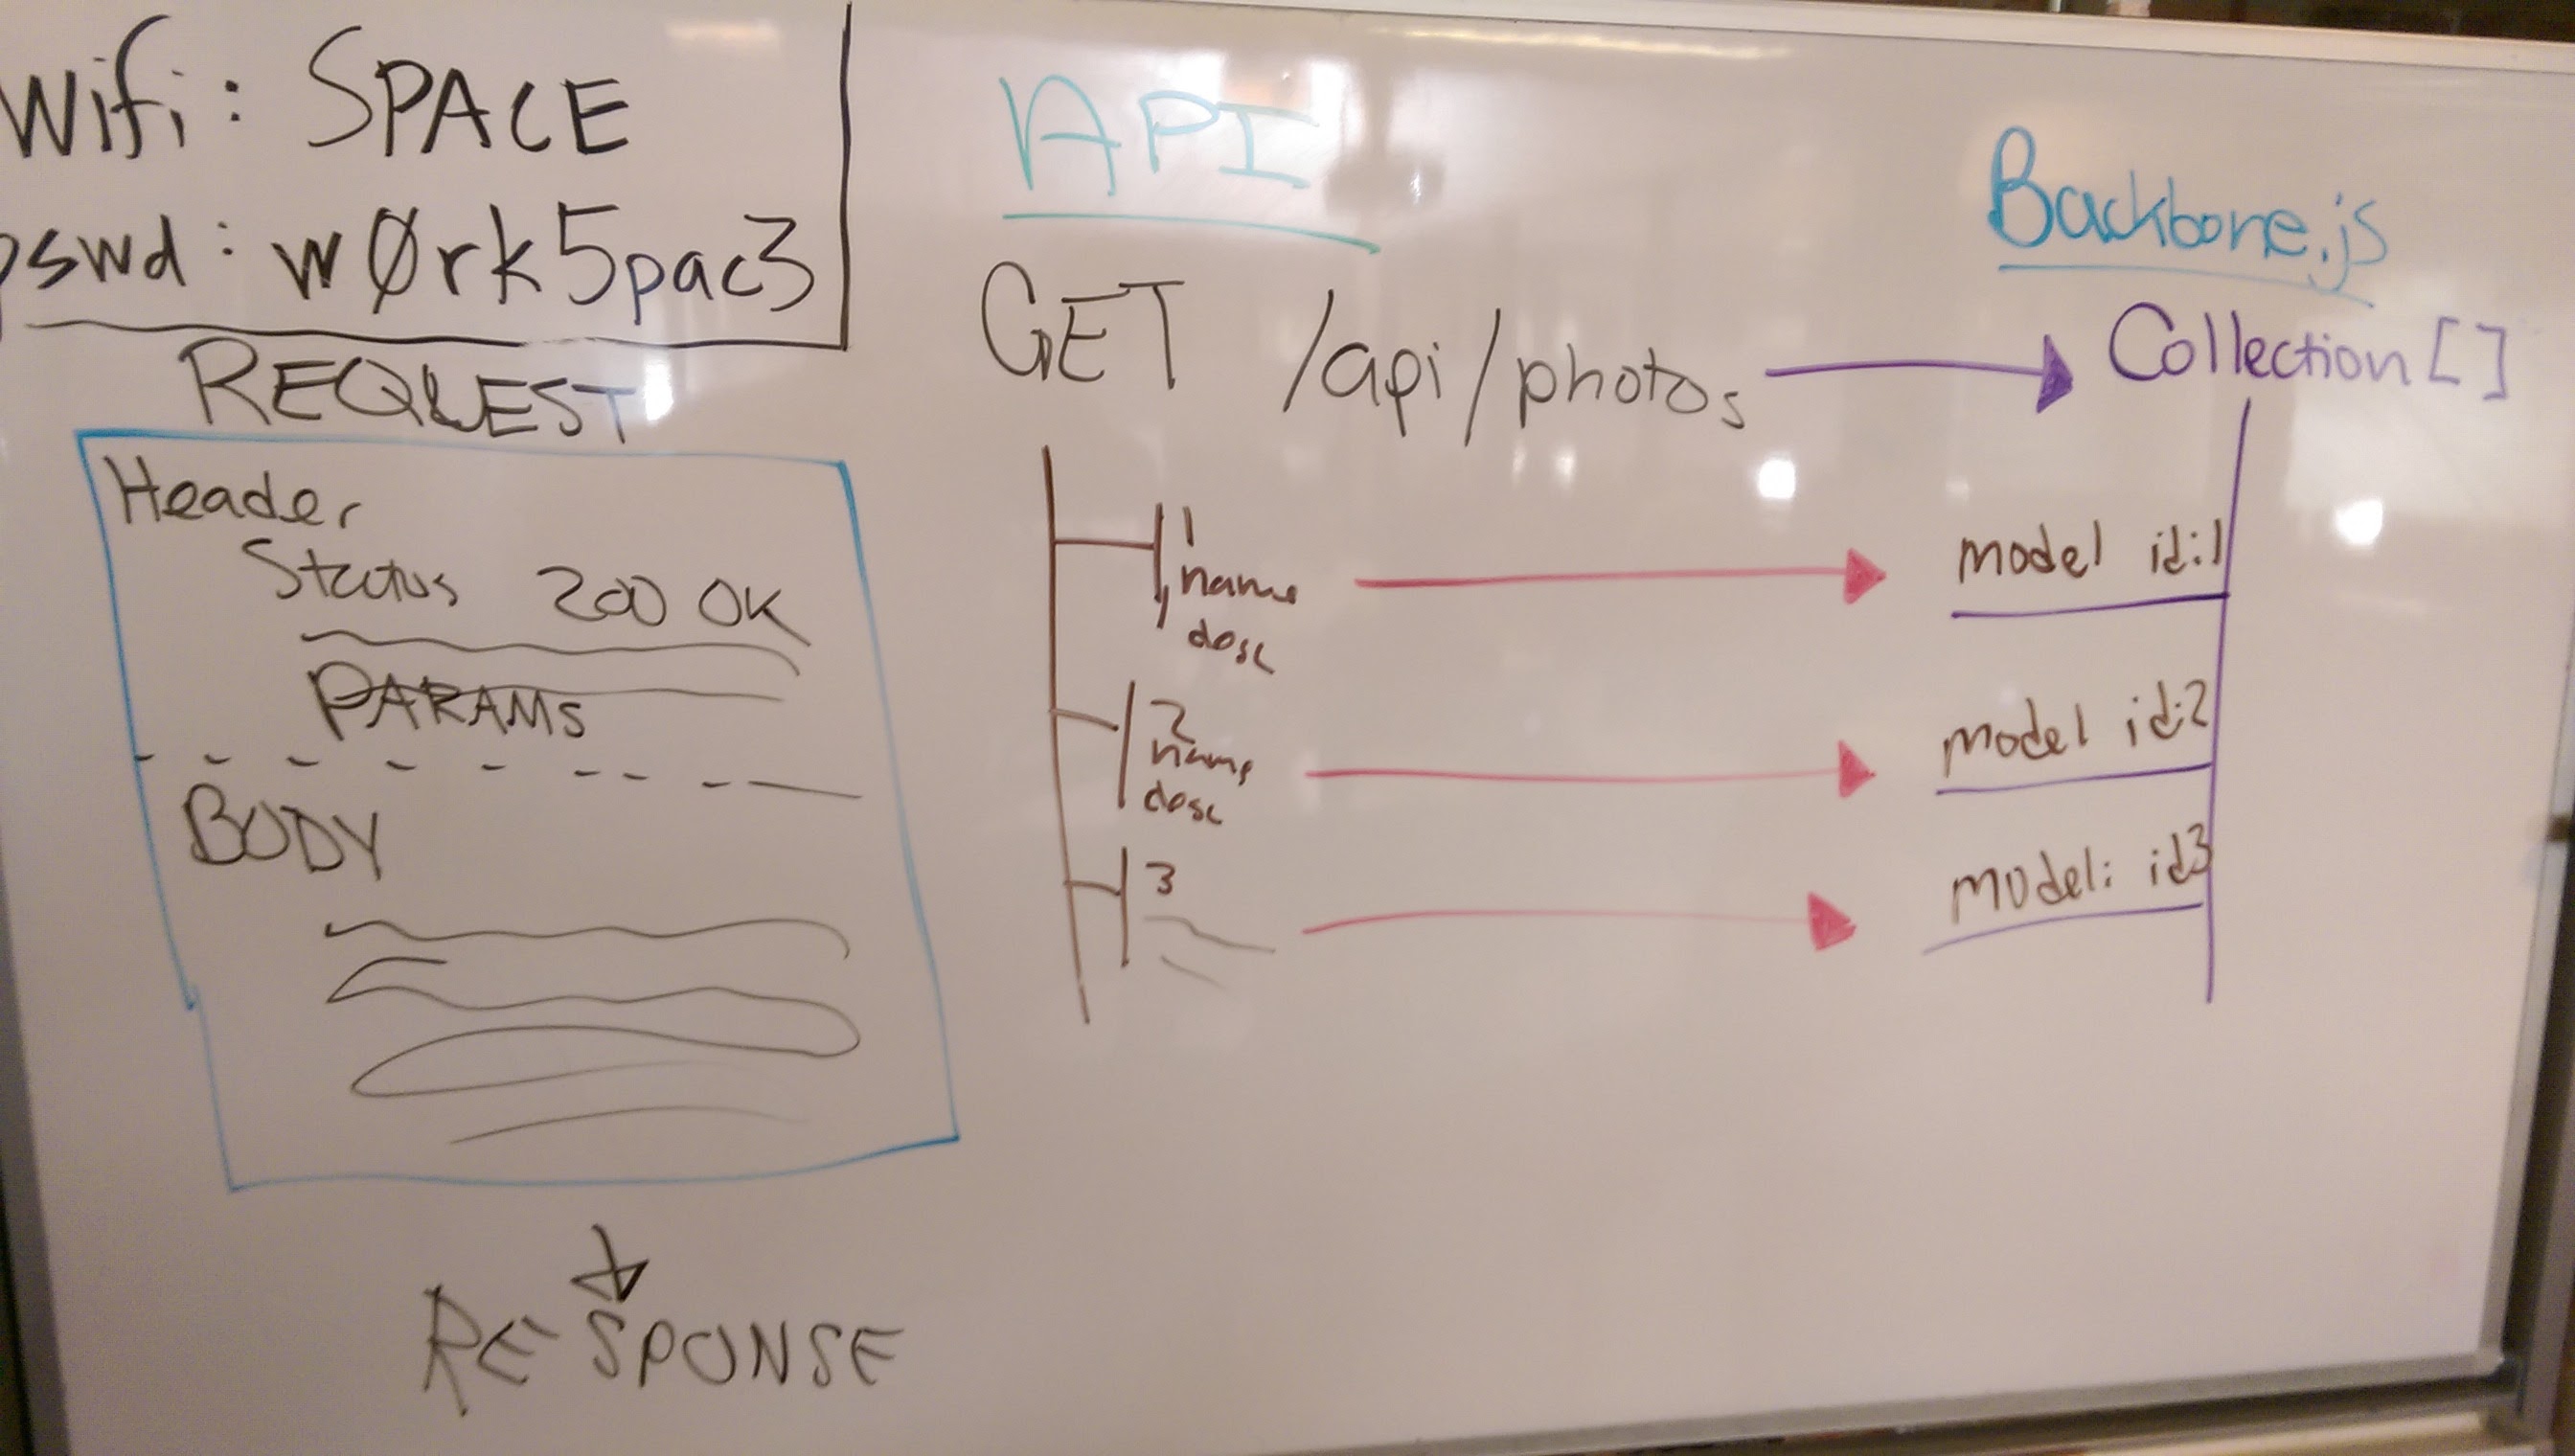 Wifi: SPACE
pswd: wØrk5pac3
REQUEST
Header
Status 200 OK
PARAMS
BODY
RESPONSE
API
GET /api/photos
1
name
desc
2
name
desc
3
Backbone.js
Collection []
model id:1
model id:2
model: id3